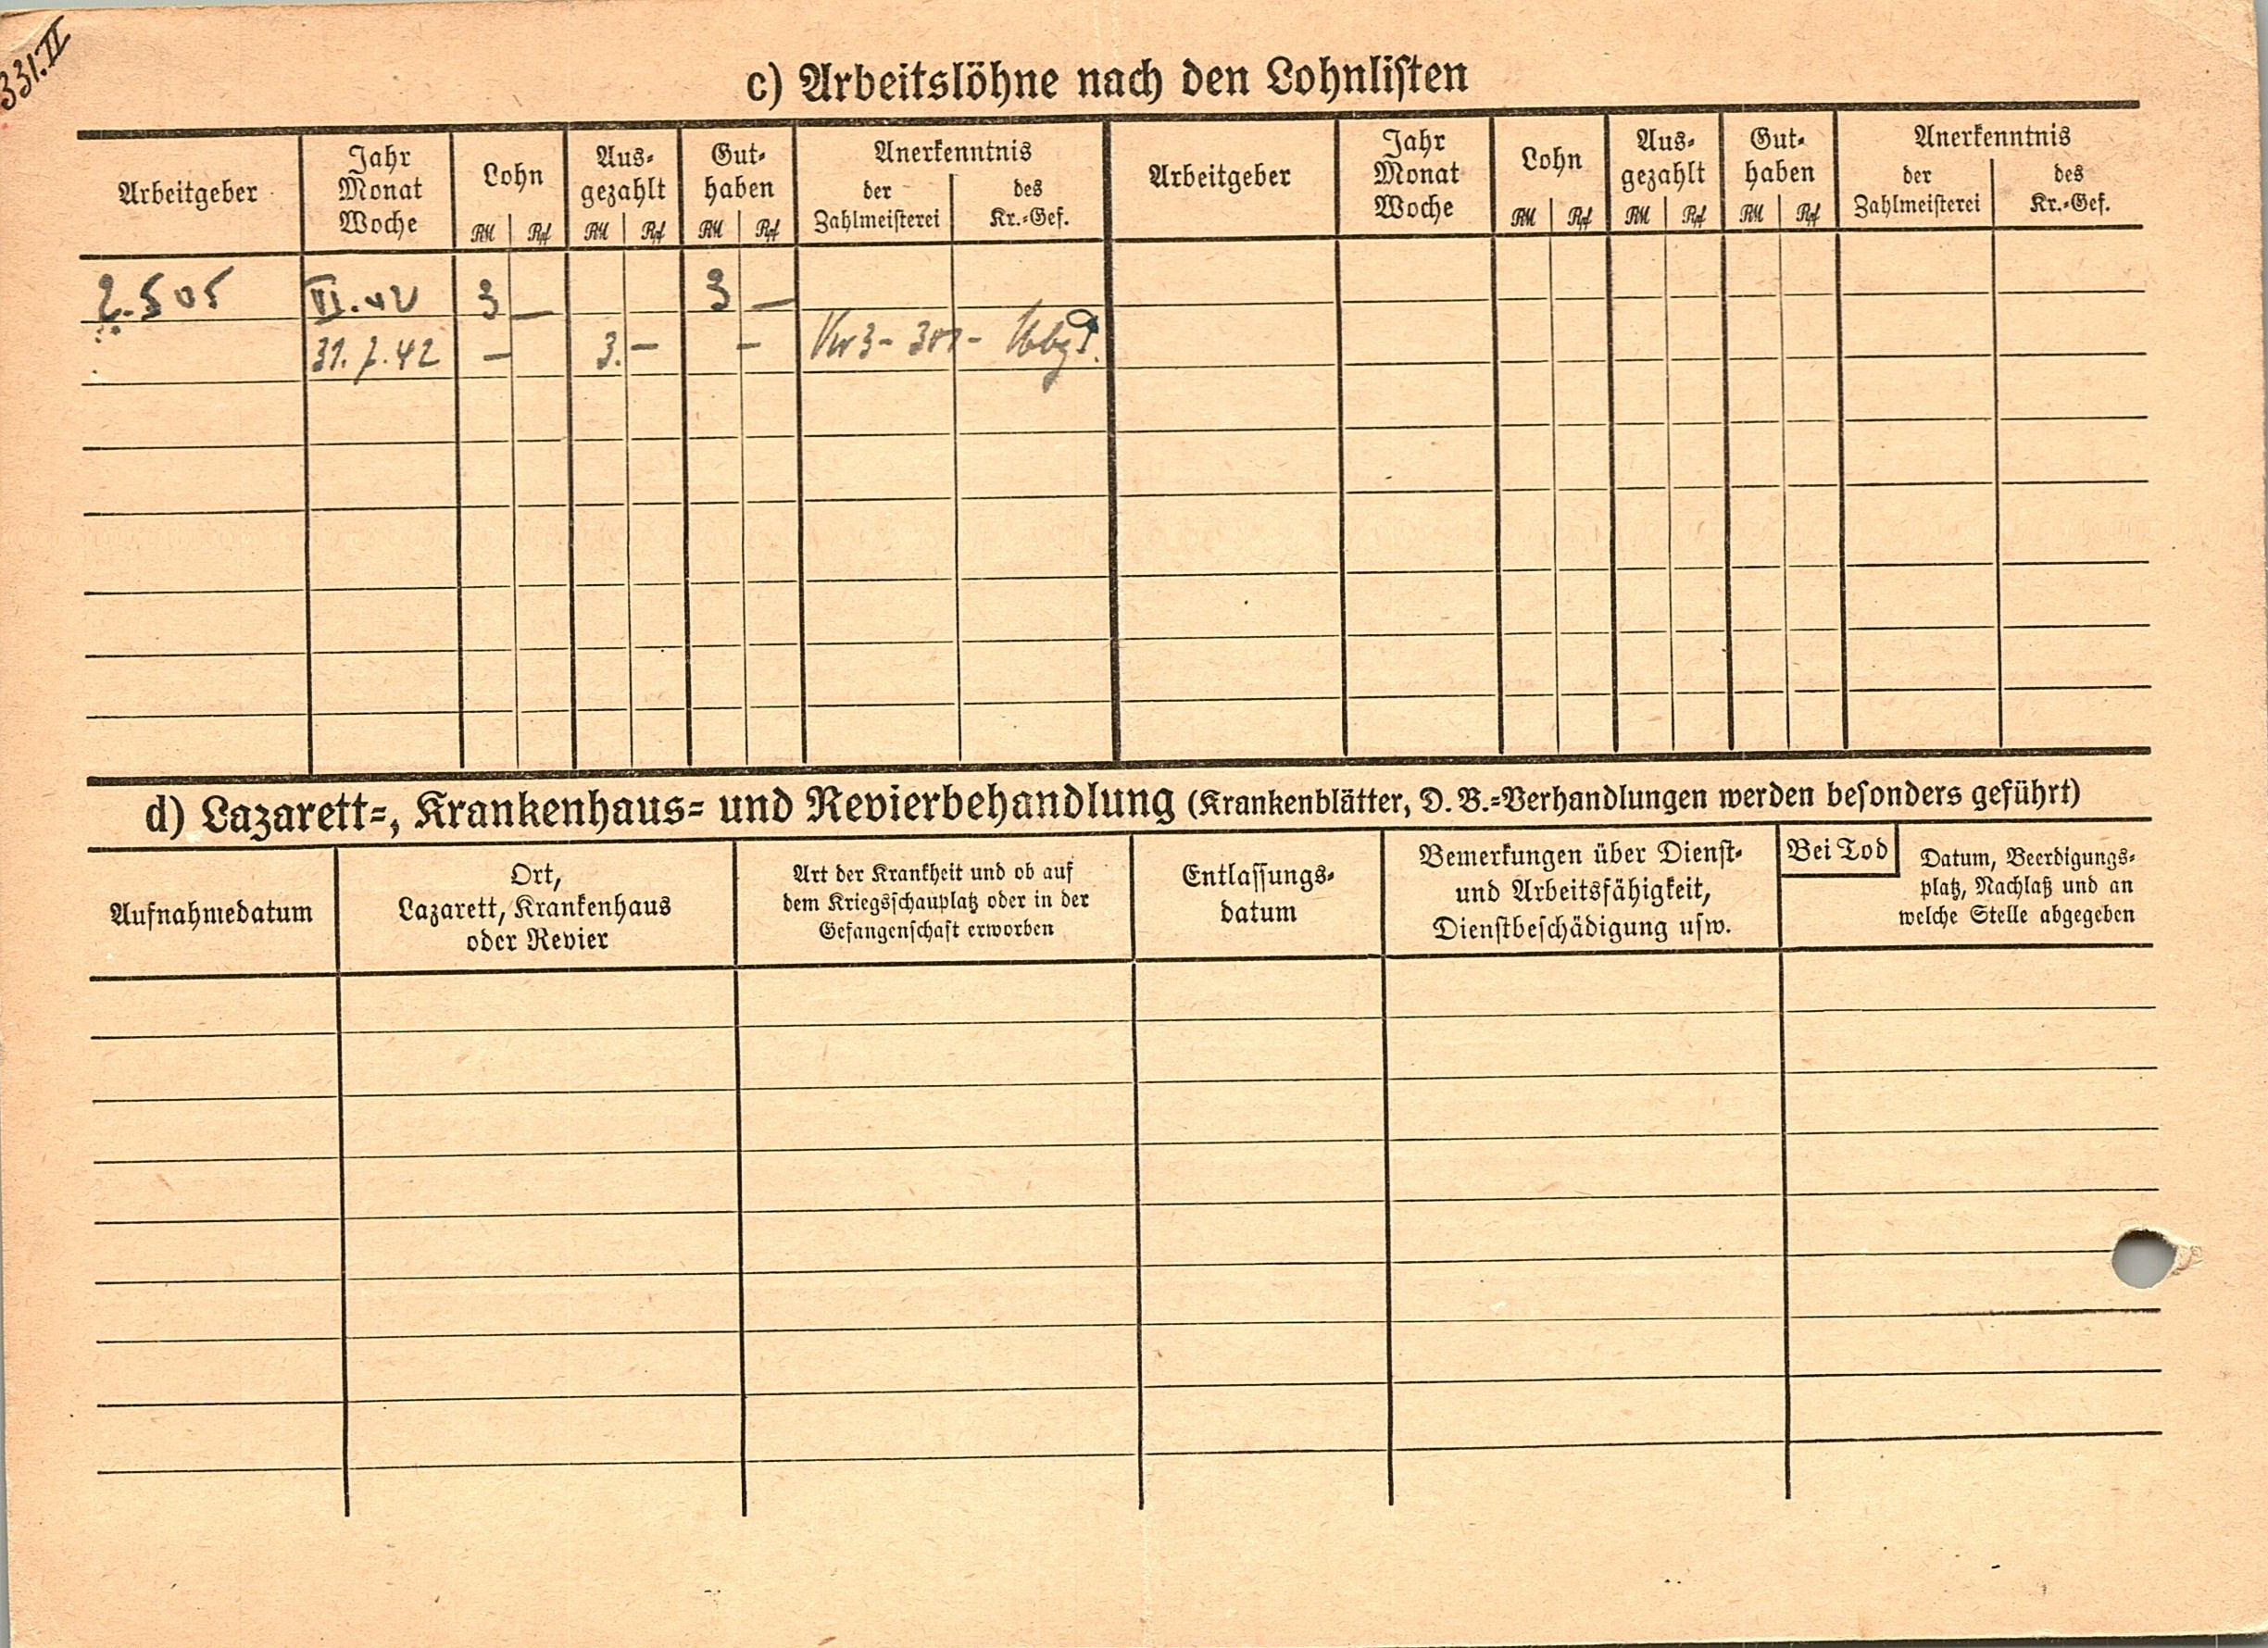 331.II
c) Arbeitslöhne nach den Lohnlisten
Arbeitgeber Jahr Monat Woche Lohn RM Rpf Aus- gezahlt RM Rpf Gut- haben RM Rpf Anerkenntnis der Zahlmeisterei des Kr.-Gef. Arbeitgeber Jahr Monat Woche Lohn RM Rpf Aus- gezahlt RM Rpf Gut- haben RM Rpf Anerkenntnis der Zahlmeisterei des Kr.-Gef.
2.505 VI.42 3 — 3 —
31.7.42 — 3. — —
d) Lazarett-, Krankenhaus- und Revierbehandlung (Krankenblätter, D. B.-Verhandlungen werden besonders geführt)
Aufnahmedatum Ort, Lazarett, Krankenhaus oder Revier Art der Krankheit und ob auf dem Kriegsschauplatz oder in der Gefangenschaft erworben Entlassungs- datum Bemerkungen über Dienst- und Arbeitsfähigkeit, Dienstbeschädigung usw. Bei Tod Datum, Beerdigungs- platz, Nachlaß und an welche Stelle abgegeben